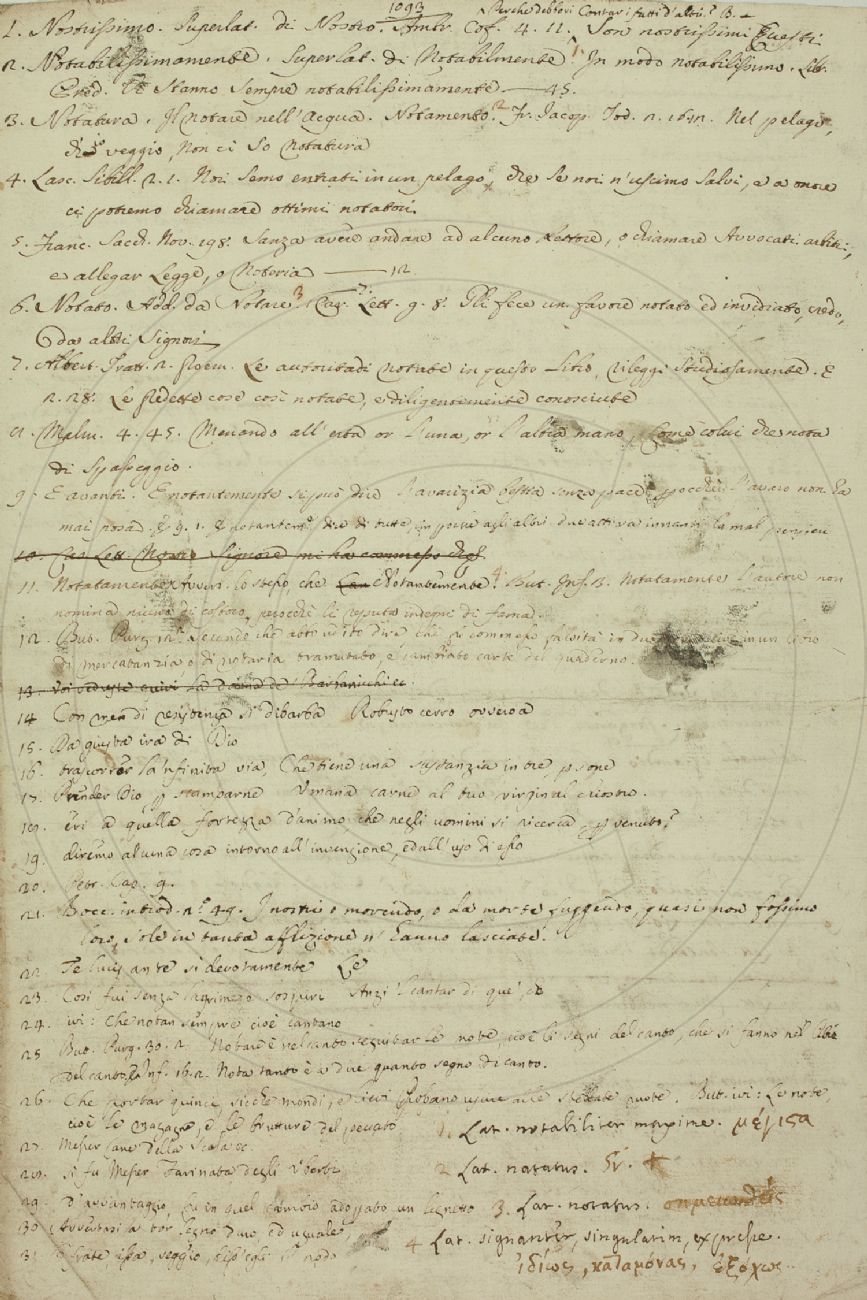 1093
Perchè debbovi Contar i fatti d'altri? B.
1. Nostrissimo. Superlat. di Nostro. Ambr. Cof. 4. 11. Son nostrissimi Questi
2. Notabilissimamente. Superlat. di Notabilmente 1. In modo notabilissimo. Lib.
Pred. Stanno sempre notabilissimamente — 45.
3. Notatura. Il notare nell'acqua. Notamento. 2 Fr. Jacop. Tod. 2. Nel pelago,
ch'io veggio, Non ci so notatura
4. Lasc. Sibill. 2. 1. Noi semo entrati in un pelago, che se noi n'usciamo salvi, e a onore
ci potremo chiamare ottimi notatori.
5. Franc. Sacch. Nov. 198. Sanza avere andare ad alcuno Rettore, o chiamare Avvocati
e allegar Legge, o Notoria — 12
6. Notato. Add. da Notare. 3 Car. Lett. 9. 8. Gli fece un favore notato ed invidiato, credo,
da altri Signori
7. Albert. Tratt. 2. proem. Le autoritadi notate in questo Libro, rileggi studiosamente. E
2. 28. Le predette cose così notate, e diligentemente conosciute
8. Malm. 4. 45. Menando all'erta or l'una, or l'altra mano, Come colui che nota
di Spasseggio.
9. E avanti. E notantemente si può dire l'avarizia bestia senza pace, perocchè l'avaro non ha
mai posa. E 9. 1. E notantem. dice di tutte
10. Car. Lett. Nostro Signore mi ha commesso
11. Notatamente. Avverb. lo stesso, che Notantemente. 4 But. Inf. 3. Notatamente l'autore non
nomina niuno di costoro, perocchè li reputa indegni di fama.
12. But. Purg. 12. Secondo che abbo udito dire che si commesse falsità in due
di mercatanzia o di notaria tramutato, e cambiato carte del quaderno.
13. Voi vedreste quivi la Dama de' Barbanicchi ec.
14 Con men di resistenza si dibarba Robusto cerro ovvero a
15. Da giusta ira di Dio
16. trascorrer la 'nfinita via, Che tiene una sustanzia in tre psone
17. Prender Dio p scamparne Umana carne al tuo virginal chiostro.
18. eri a quella fortezza d'animo che negli uomini si ricerca
19. diremo alcuna cosa intorno all'invenzione, ed all'uso di esso
20. Petr. Cap. 9.
21. Bocc. introd. n.° 49. I nostri o morendo, o da morte fuggendo, quasi non fossimo
loro, sole in tanta afflizione n'hanno lasciate.
22. Te lucis ante sì devotamente Le
23. Così fui senza lacrime e sospiri Anzi 'l cantar di que', ch
24. ivi: che notan sempre cioè cantano
25 But. Purg. 30. 2. Notare è nel canto seguitar le note, cioè li segni del canto, che si fanno nel libro
del canto. Inf. 16. 2. Nota tanto è a dire quanto segno di canto.
26. Che portar quinci, sicchè mondi, e lievi Possano uscire alle stellate ruote. But. ivi: Le note,
cioè le magagne, e le brutture del peccato
27. Messer Cane della Scala ec.
28. Si fu Messer Farinata degli Uberti
29. D'avvantaggio,
30 Avventasi a tor segno duro, ed uguale,
31.
1. Lat. notabiliter maxime. μέγιστα
2 Lat. natatus. Gr.
3. Lat. notatus.
4 Lat. signanter, singulatim, expresse.
ἰδίως, καταμόνας, ἐξόχως.